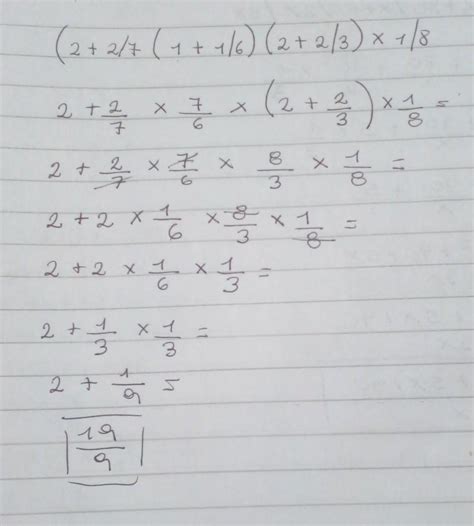 (2 + 2/7 (1 + 1/6) (2 + 2/3) × 1/8
2 + 2/7 × 7/6 × (2 + 2/3) × 1/8 =
2 + 2/7 × 7/6 × 8/3 × 1/8 =
2 + 2 × 1/6 × 8/3 × 1/8 =
2 + 2 × 1/6 × 1/3 =
2 + 1/3 × 1/3 =
2 + 1/9 =
19/9